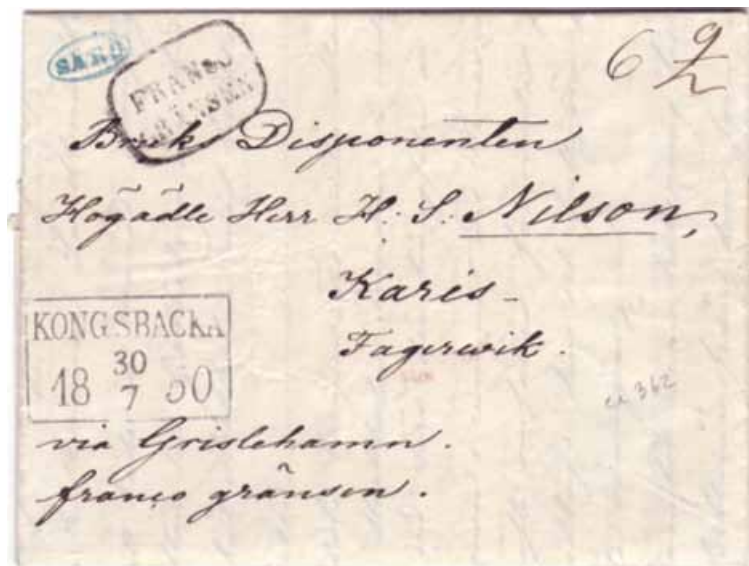 SÄRÖ
6 9/2
FRANCO
GRÄNSEN
Bruks Disponenten
Högädle Herr H: S: Nilson,
Karis
Fagerwik.
KONGSBACKA
30
18 7 50
via Grislehamn.
franco gränsen.
362